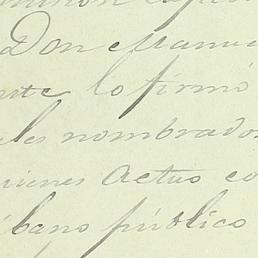 Don Manue
nte lo firmó
eles nombrado
uienes actuo co
ibano público